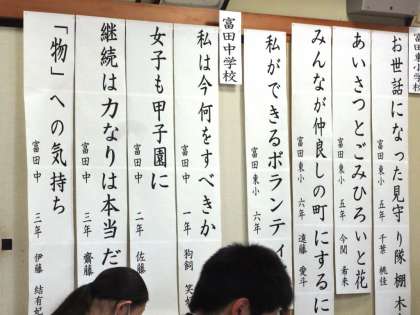 富田東小学校
お世話になった見守り隊
富田東小 五年 千葉 桃佳
あいさつとごみひろいと花
富田東小 五年 今関 看来
みんなが仲良しの町にするに
富田東小 六年 遠藤 愛斗
私ができるボランティ
富田東小 六年
富田中学校
私は今何をすべきか
富田中 一年 狗飼 笑
女子も甲子園に
富田中 二年 佐藤
継続は力なりは本当だ
富田中 三年 齋藤
「物」への気持ち
富田中 三年 伊藤 結有妃